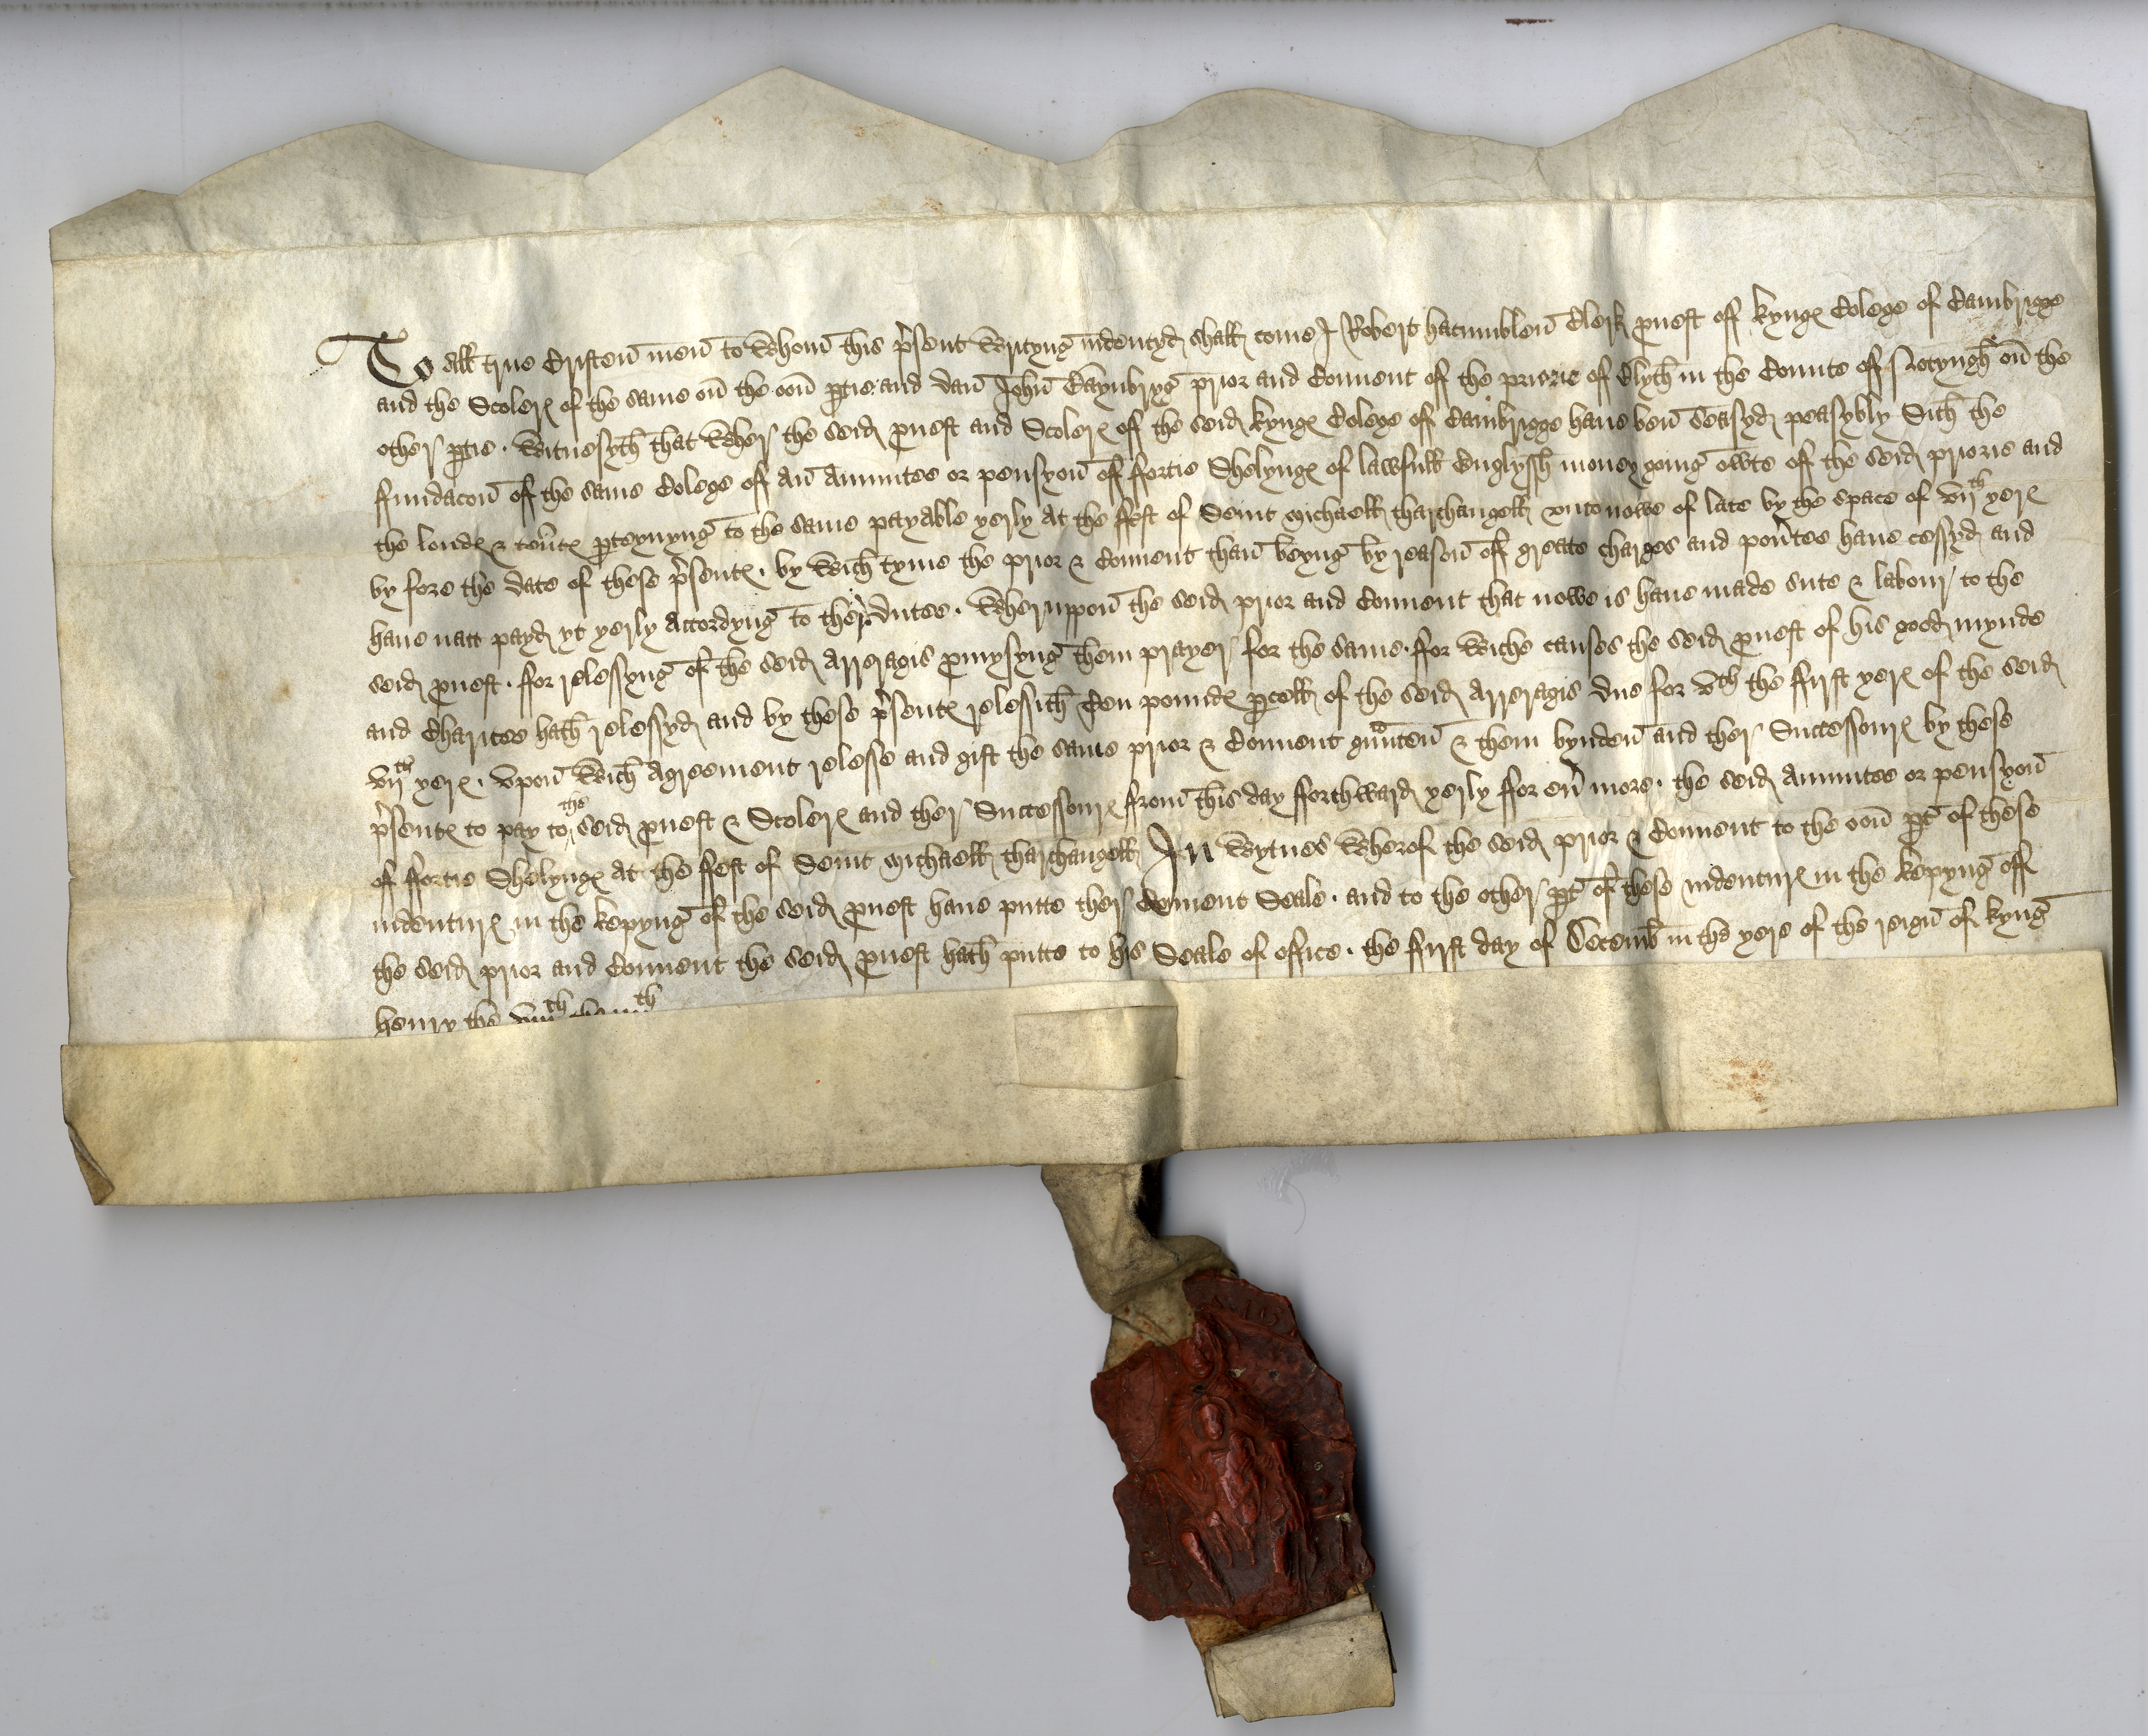 To all true Cristen men to Whom this p'sent Writyng indentyd shall come I Robert hacumblen Clerk p'uost off kynge Colege of Cambrigge
and the Scolers of the same on the oon p'tie and dan John Baynbryg prior and Couuent of the priorie of Blyth in the Counte off Notyngh' on the
other p'tie . Witnesyth that Wher the seid p'uost and Scolers off the seid kynge Colege off Cambrigge haue ben Seasyd peasybly Sith the
ffundacon off the same Colege off an Annuitee or pensyon off ffortie Shelynge of lawfull Englyssh money going owte off the seid priorie and
the londe & ten'te p'teynyng to the same payable yerly at the ffest of Seint Michaell tharchangell vnto nowe of late by the space of vijth yere
by fore the date of these p'sente . by Wich tyme the prior & Couuent than beyng by reason off greate charges and pou'tee haue cessyd and
haue natt payd yt yerly Accordyng to ther dutee . Wheruppon the seid prior and Couuent that nowe is haue made sute & labour to the
seid p'uost . ffor relessyng of the seid Arreragis p'mysyng them prayer for the same . ffor Wiche causes the seid p'uost of his good mynde
and Charitee hath relessyd and by these p'sente relessith Ten pounde p'cell of the seid Arreragis due for vth the ffirst yere of the seid
vijth yere . Vpon Wich Agreement relesse and gift the same prior & Couuent g'unten & them bynden and ther Successoure by these
p'sente to pay to the seid p'uost & Scolers and ther Successoure from this day fforthward yerly ffor eu' more . the seid Annuitee or pensyon
of ffortie Shelynge At the ffest of Seint Michaell tharchangell In Wytnes Wherof the seid prior & Couuent to the oon p't of these
indenture in the kepyng of the seid p'uost haue putte ther Couuent Seale . and to the other p't of these indenture in the kepyng off
the seid prior and Couuent the seid p'uost hath putte to his Seale of office . the ffirst day of Decemb' in the yere of the reign of kyng
henry the viijth the